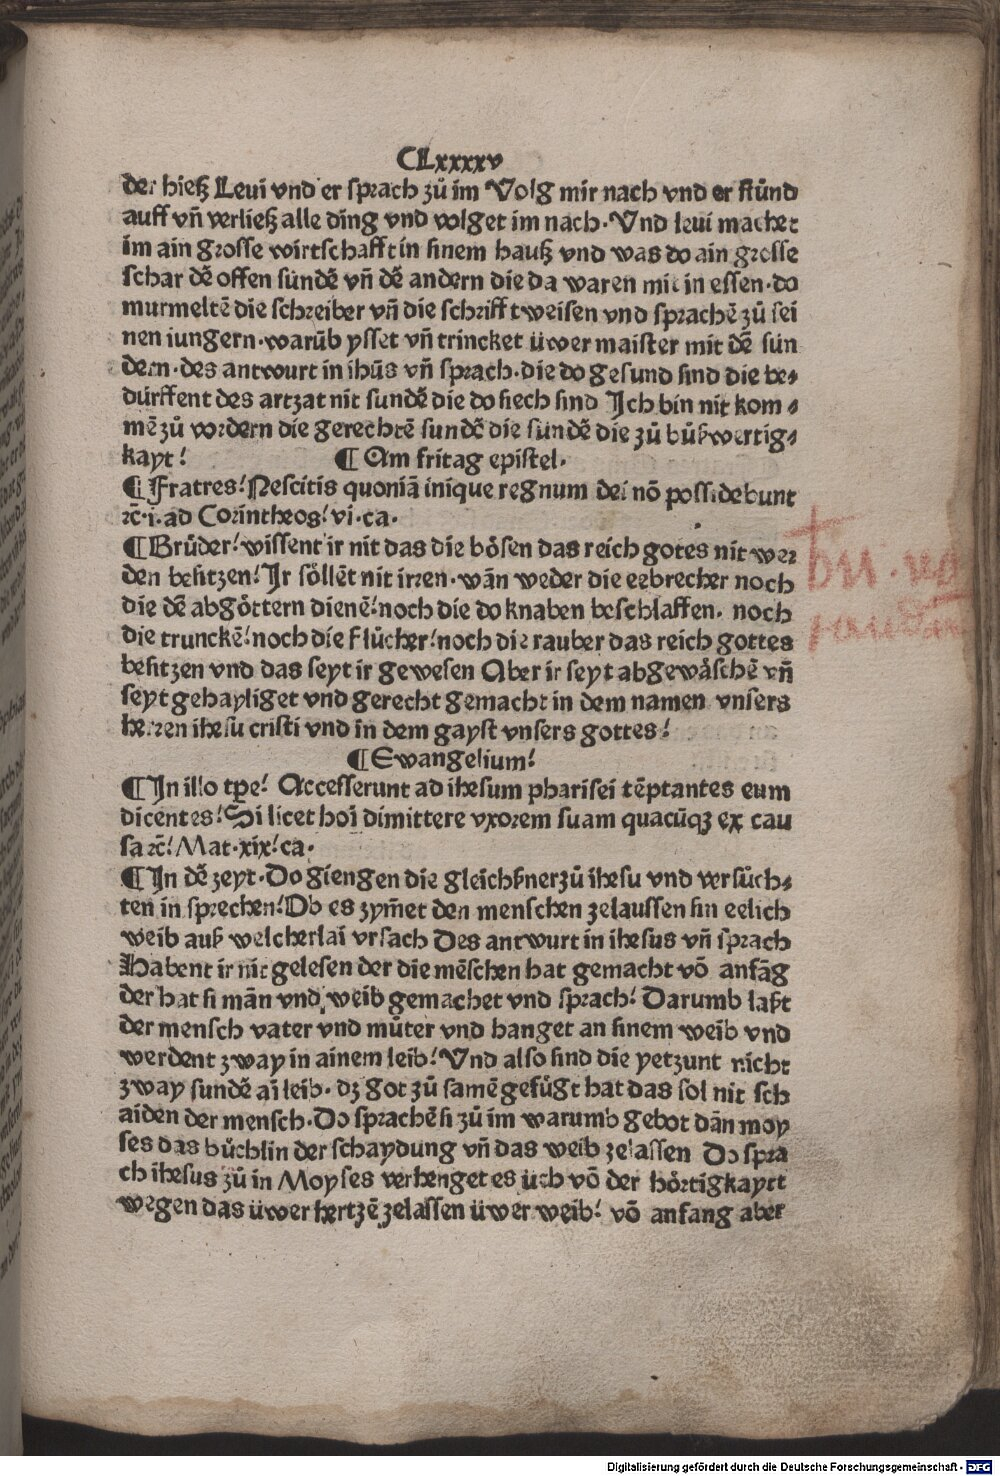 CLxxxxv
der hieß Leui vnd er sprach zů im Volg mir nach vnd er stůnd
auff vn̄ verließ alle ding vnd volget im nach. Vnd leui machet
im ain grosse wirtschafft in sinem hauß vnd was do ain grosse
schar dē offen sündē vn̄ dē andern die da waren mit in essen. do
murmeltē die schreiber vn̄ die schrifft weisen vnd sprachē zů sei
nen iungern. warūb ysset vn̄ trincket üwer maister mit dē sün
dern. des antwurt in ihūs vn̄ sprach. die do gesund sind die be⸗
dürffent des artzat nit sundē die do siech sind Ich bin nit kom⸗
mē zů vordern die gerechtē sundē die sündē die zů bůßwertig⸗
kayt! ¶ Am fritag epistel.
¶ Fratres! Nescitis quoniā inique regnum dei nō possidebunt
ꝛc̄. i. ad Corintheos! vi. ca.
¶ Brůder! wissent ir nit das die bösen das reich gotes nit wer
den besitzen! Ir söllēt nit irren. wān weder die eebrecher noch
die dē abgöttern dienē! noch die do knaben beschlaffen. noch
die trunckē! noch die flůcher! noch die rauber das reich gottes
besitzen vnd das seyt ir gewesen Aber ir seyt abgewäschē vn̄
seyt gehayliget vnd gerecht gemacht in dem namen vnsers
herren ihesu cristi vnd in dem gayst vnsers gottes!
¶ Ewangelium!
¶ In illo tp̄e! Accesserunt ad ihesum pharisei tēptantes eum
dicentes! Si licet hoī dimittere vxorem suam quacūqꝫ ex cau
sa ꝛc̄! Mat. xix! ca.
¶ In dē zeyt. Do giengen die gleichßner zů ihesu vnd versůch⸗
ten in sprechen! Ob es zym̄et den menschen zelaussen sin eelich
weib auß welcherlai vrsach Des antwurt in ihesus vn̄ sprach
Habent ir nit gelesen der die mēschen hat gemacht vō anfāg
der hat si mān vnd weib gemachet vnd sprach! Darumb laßt
der mensch vater vnd můter vnd hanget an sinem weib vnd
werdent zway in ainem leib! Vnd also sind die yetzunt nicht
zway sundē aī leib. dꝫ got zů samē gefůgt hat das sol nit sch
aiden der mensch. Do sprachē si zů im warumb gebot dān moy
ses das bůchlin der schaydung vn̄ das weib zelassen Do spra
ch ihesus zů in Moyses verhenget es üch vō der hörtigkaytt
wegen das üwer hertzē zelassen üwer weib! vō anfang aber
Digitalisierung gefördert durch die Deutsche Forschungsgemeinschaft - DFG